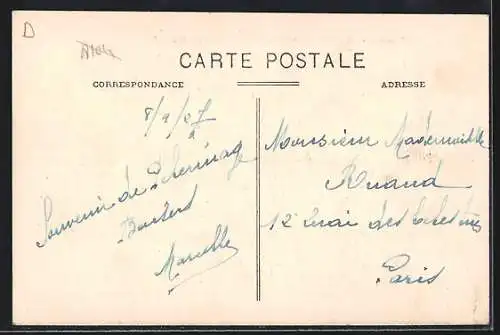 D
CARTE POSTALE
CORRESPONDANCE
ADRESSE
8/9/07
Souvenir de Pelerinage
Marcelle
Monsieur Mademoiselle
Ruaud
12 Quai des Celestins
Paris